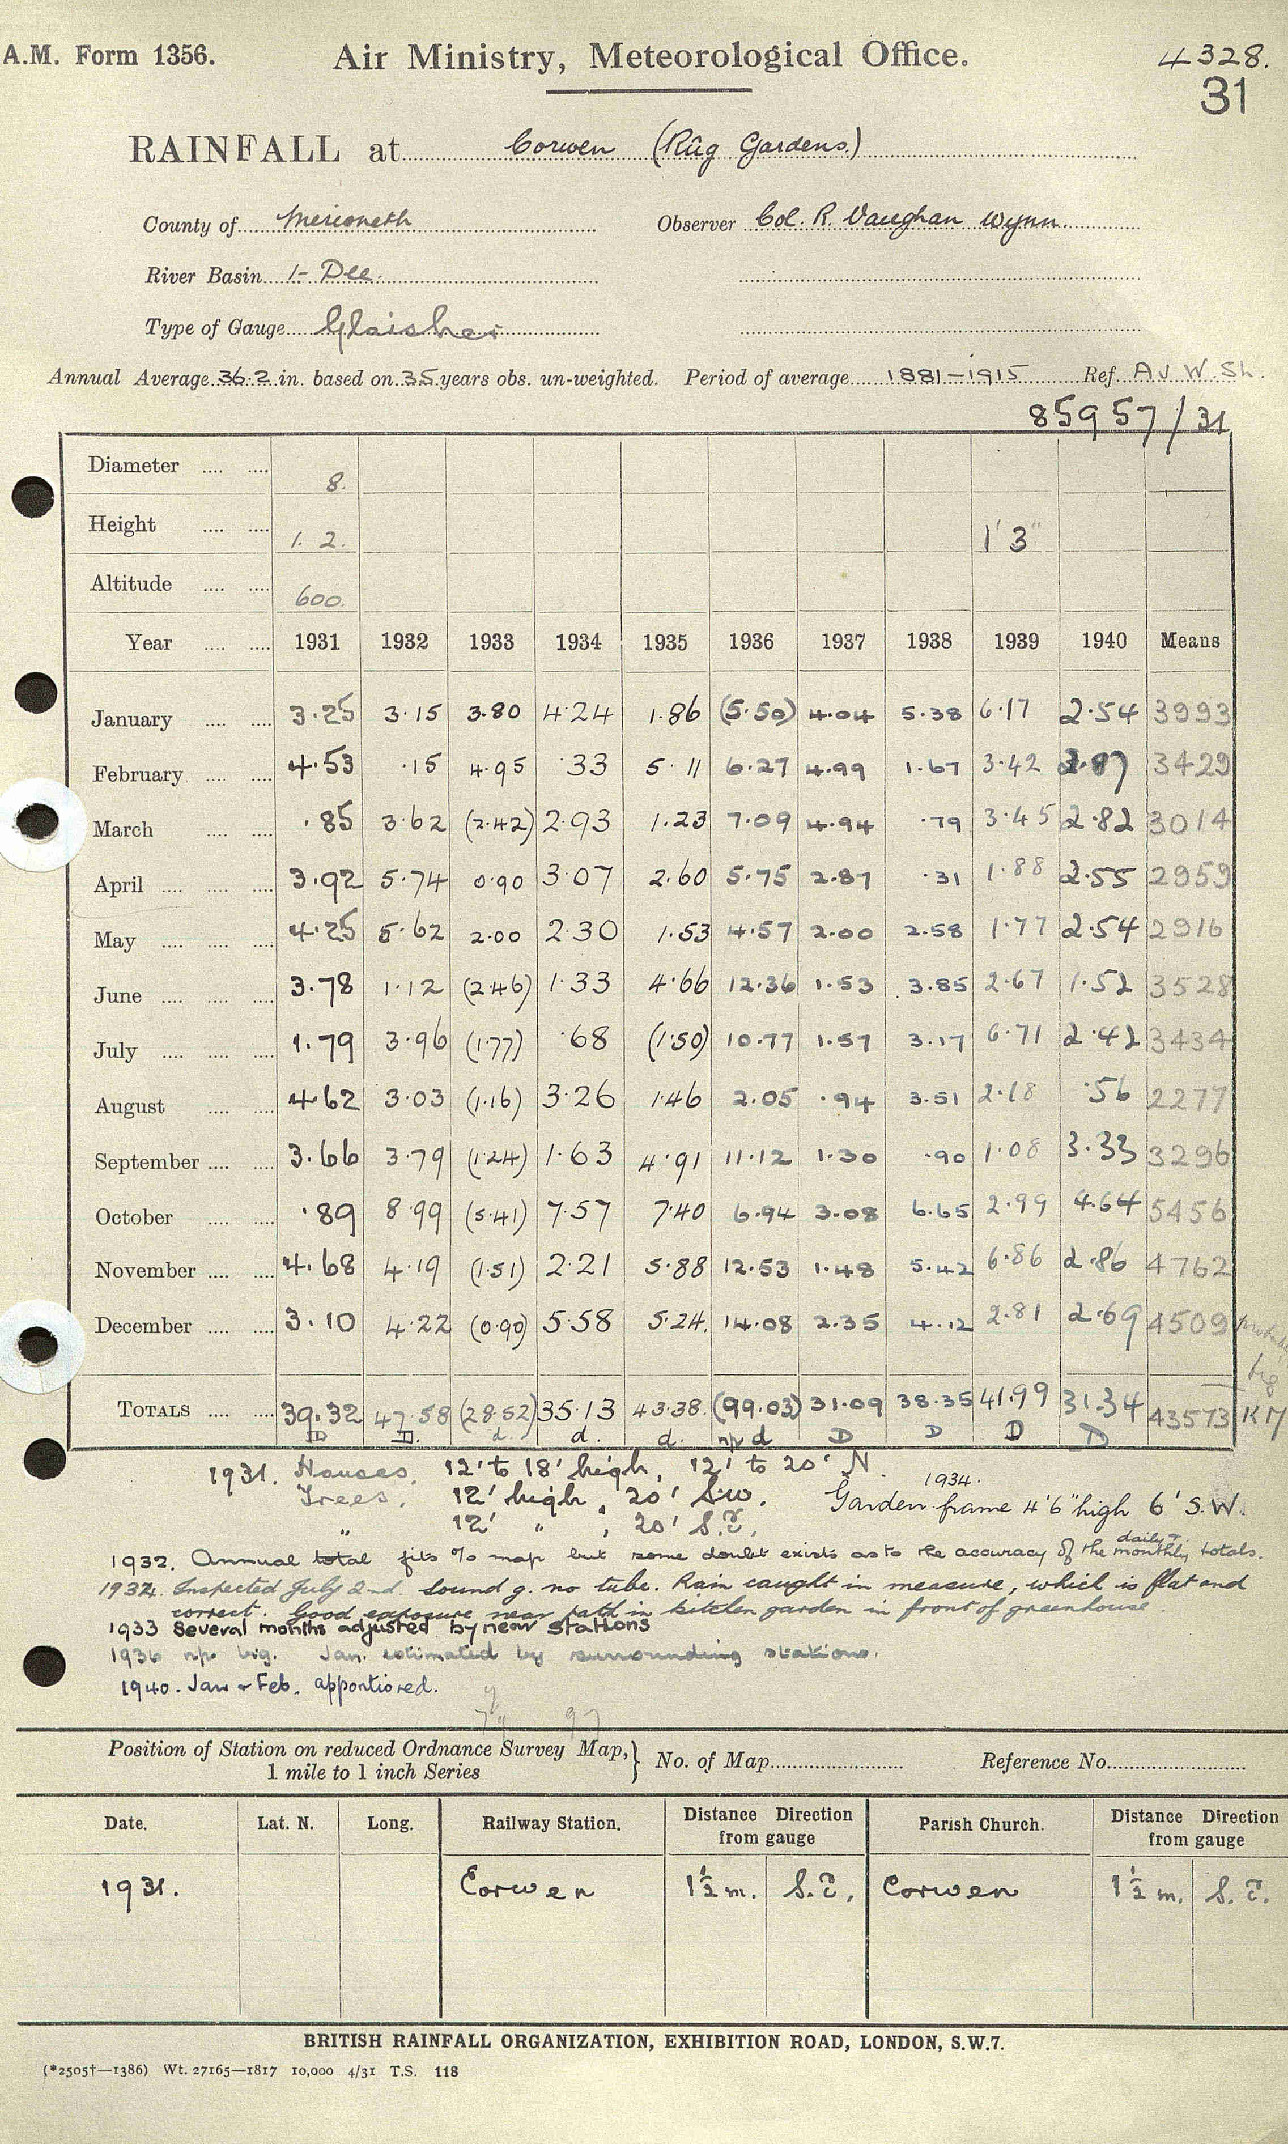 A.M. Form 1356. Air Ministry, Meteorological Office. 4328.
31
RAINFALL at Corwen (Rûg Gardens)
County of Merioneth Observer Col. R. Vaughan Wynn
River Basin 1- Dee.
Type of Gauge Glaisher
Annual Average 36.2 in. based on 35 years obs. un-weighted. Period of average 1881-1915 Ref. A J W. Sh.
85957/31
Diameter .... .... 8.
Height .... .... 1. 2. 1' 3"
Altitude .... .... 600.
Year .... .... 1931 1932 1933 1934 1935 1936 1937 1938 1939 1940 Means
January .... .... 3.25 3.15 3.80 4.24 1.86 (5.50) 4.04 5.38 6.17 2.54 3993
February .... .... 4.53 .15 4.95 .33 5.11 6.27 4.99 1.67 3.42 2.87 3429
March .... .... .85 3.62 (2.42) 2.93 1.23 7.09 4.94 .79 3.45 2.82 3014
April .... .... .... 3.92 5.74 0.90 3.07 2.60 5.75 2.87 .31 1.88 2.55 2959
May .... .... .... 4.25 5.62 2.00 2.30 1.53 4.57 2.00 2.58 1.77 2.54 2916
June .... .... .... 3.78 1.12 (2.46) 1.33 4.66 12.36 1.53 3.85 2.67 1.52 3528
July .... .... .... 1.79 3.96 (1.77) .68 (1.50) 10.77 1.57 3.17 6.71 2.42 3434
August .... .... 4.62 3.03 (1.16) 3.26 1.46 2.05 .94 3.51 2.18 .56 2277
September .... .... 3.66 3.79 (1.24) 1.63 4.91 11.12 1.30 .90 1.08 3.33 3296
October .... .... .89 8.99 (5.41) 7.57 7.40 6.94 3.08 6.65 2.99 4.64 5456
November .... .... 4.68 4.19 (1.51) 2.21 5.88 12.53 1.48 5.42 6.86 2.86 4762
December .... .... 3.10 4.22 (0.90) 5.58 5.24. 14.08 2.35 4.12 2.81 2.69 4509
TOTALS .... .... 39.32 47.58 (28.52) 35.13 43.38. (99.03) 31.09 38.35 41.99 31.34 43573 KM
D D. d. d. d. np d D D D D
1931. Houses, 12' to 18' high, 12' to 20' N.
Trees, 12' high, 20' S.W. 1934. Garden frame 4'6" high 6' S.W.
" 12' " , 20' S.E.
1932. Annual total fits % map but some doubt exists as to the accuracy of the monthly daily? totals.
1934. Inspected July 2nd. found g. no tube. Rain caught in measure, which is flat and
correct. Good exposure near path in kitchen garden in front of greenhouse
1933 Several months adjusted by near stations
1936 np big. Jan. estimated by surrounding stations.
1940. Jan & Feb. apportioned.
Position of Station on reduced Ordnance Survey Map, } No. of Map Reference No.
1 mile to 1 inch Series
Date. Lat. N. Long. Railway Station. Distance Direction from gauge Parish Church. Distance Direction from gauge
1931. Corwen 1½ m. S.E. Corwen 1½ m. S.E.
BRITISH RAINFALL ORGANIZATION, EXHIBITION ROAD, LONDON, S.W.7.
(*2505†—1386) Wt. 27165—1817 10,000 4/31 T.S. 118